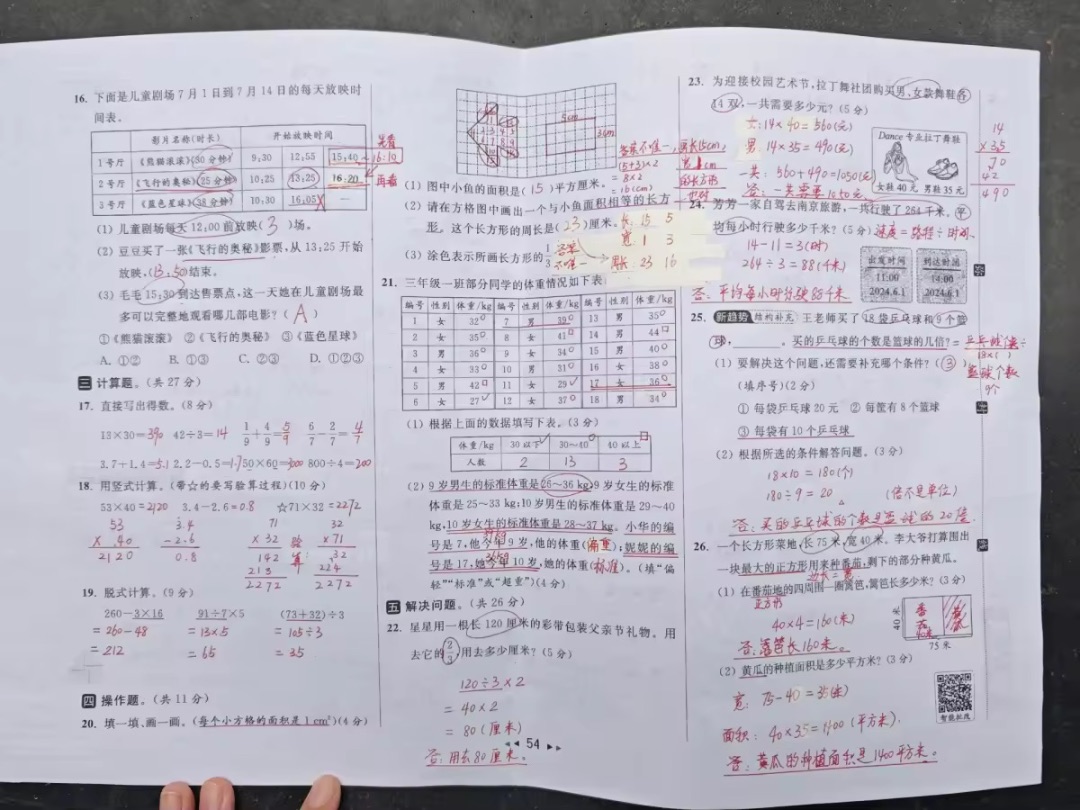 16. 下面是儿童剧场7月1日到7月14日的每天放映时
间表。
影片名称(时长) 开始放映时间
1号厅 《熊猫滚滚》(30分钟) 9:30 12:55 15:40 ~16:10
2号厅 《飞行的奥秘》(25分钟) 10:25 13:25 16:20 再看
3号厅 《蓝色星球》(38分钟) 10:30 16:05 —
(1) 儿童剧场每天12:00前放映(3)场。
(2) 豆豆买了一张《飞行的奥秘》影票,从13:25开始
放映,(13:50)结束。
(3) 毛毛15:30到达售票点,这一天她在儿童剧场最
多可以完整地观看哪几部电影?(A)
①《熊猫滚滚》 ②《飞行的奥秘》 ③《蓝色星球》
A. ①② B. ①③ C. ②③ D. ①②③
三 计算题。(共27分)
17. 直接写出得数。(8分)
13×30=390 42÷3=14 1/9+4/9=5/9 6/7-2/7=4/7
3.7+1.4=5.1 2.2-0.5=1.7 50×60=3000 800÷4=200
18. 用竖式计算。(带☆的要写验算过程)(10分)
53×40=2120 3.4-2.6=0.8 ☆71×32=2272
53 3.4 71 32
× 40 -2.6 ×32 验 ×71
2120 0.8 142 算: 32
213 224
2272 2272
19. 脱式计算。(9分)
260-3×16 91÷7×5 (73+32)÷3
=260-48 =13×5 =105÷3
=212 =65 =35
四 操作题。(共11分)
20. 填一填,画一画。(每个小方格的面积是1 cm²)(4分)
5cm
3cm
答案不唯一,周长15cm,
(5+3)×2 宽1cm
=8×2 的长方形
=16(cm) 也对
(1) 图中小鱼的面积是(15)平方厘米。
(2) 请在方格图中画出一个与小鱼面积相等的长方
形。这个长方形的周长是(23)厘米。 长 15 5
宽 1 3
(3) 涂色表示所画长方形的1/3。 答案
不唯一 周长 23 16
21. 三年级一班部分同学的体重情况如下表:
编号 性别 体重/kg 编号 性别 体重/kg 编号 性别 体重/kg
1 女 32 7 男 39 13 男 35
2 女 35 8 男 41 14 男 44
3 男 36 9 女 34 15 男 40
4 女 33 10 男 31 16 女 38
5 男 42 11 女 29 17 女 36
6 女 27 12 女 37 18 男 34
(1) 根据上面的数据填写下表。(3分)
体重/kg 30以下 30~40 40以上
人数 2 13 3
(2) 9岁男生的标准体重是26~36 kg,9岁女生的标准
体重是25~33 kg;10岁男生的标准体重是29~40
kg,10岁女生的标准体重是28~37 kg。小华的编
号是7,他今年9岁,他的体重(偏重);妮妮的编
号是17,她今年10岁,她的体重(标准)。(填“偏
轻”“标准”或“超重”)(4分)
五 解决问题。(共26分)
22. 星星用一根长120厘米的彩带包装父亲节礼物。用
去它的2/3,用去多少厘米?(5分)
120÷3×2
=40×2
=80(厘米)
答:用去80厘米。
54
23. 为迎接校园艺术节,拉丁舞社团购买男、女款舞鞋各
14双,一共需要多少元?(5分)
女:14×40=560(元)
男:14×35=490(元)
一共:560+490=1050(元)
答:一共需要1050元。
Dance 专业拉丁舞鞋
女鞋40元 男鞋35元
14
×35
70
42
490
24. 芳芳一家自驾去南京旅游,一共行驶了264千米,平
均每小时行驶多少千米?(5分) 速度=路程÷时间
14-11=3(时)
264÷3=88(千米)
答:平均每小时行驶88千米
出发时间
11:00
2024.6.1
到达时间
14:00
2024.6.1
25. 新趋势 结构补充 王老师买了18袋乒乓球和9个篮
球,______。买的乒乓球的个数是篮球的几倍?=乒乓球个数÷
18×( )
篮球个数
9个
(1) 要解决这个问题,还需要补充哪个条件?(③)
(填序号)(2分)
① 每袋乒乓球20元 ② 每筐有8个篮球
③ 每袋有10个乒乓球
(2) 根据所选的条件解答问题。(3分)
18×10=180(个)
180÷9=20 (倍不是单位)
答:买的乒乓球的个数是篮球的20倍
26. 一个长方形菜地,长75米,宽40米。李大爷打算围出
一块最大的正方形用来种番茄,剩下的部分种黄瓜。
边长=宽
(1) 在番茄地的四周围一圈篱笆,篱笆长多少米?(3分)
正方形
40×4=160(米)
答:篱笆长160米。
40米
75米
(2) 黄瓜的种植面积是多少平方米?(3分)
宽:75-40=35(米)
面积:40×35=1400(平方米).
答:黄瓜的种植面积是1400平方米。
智能批改